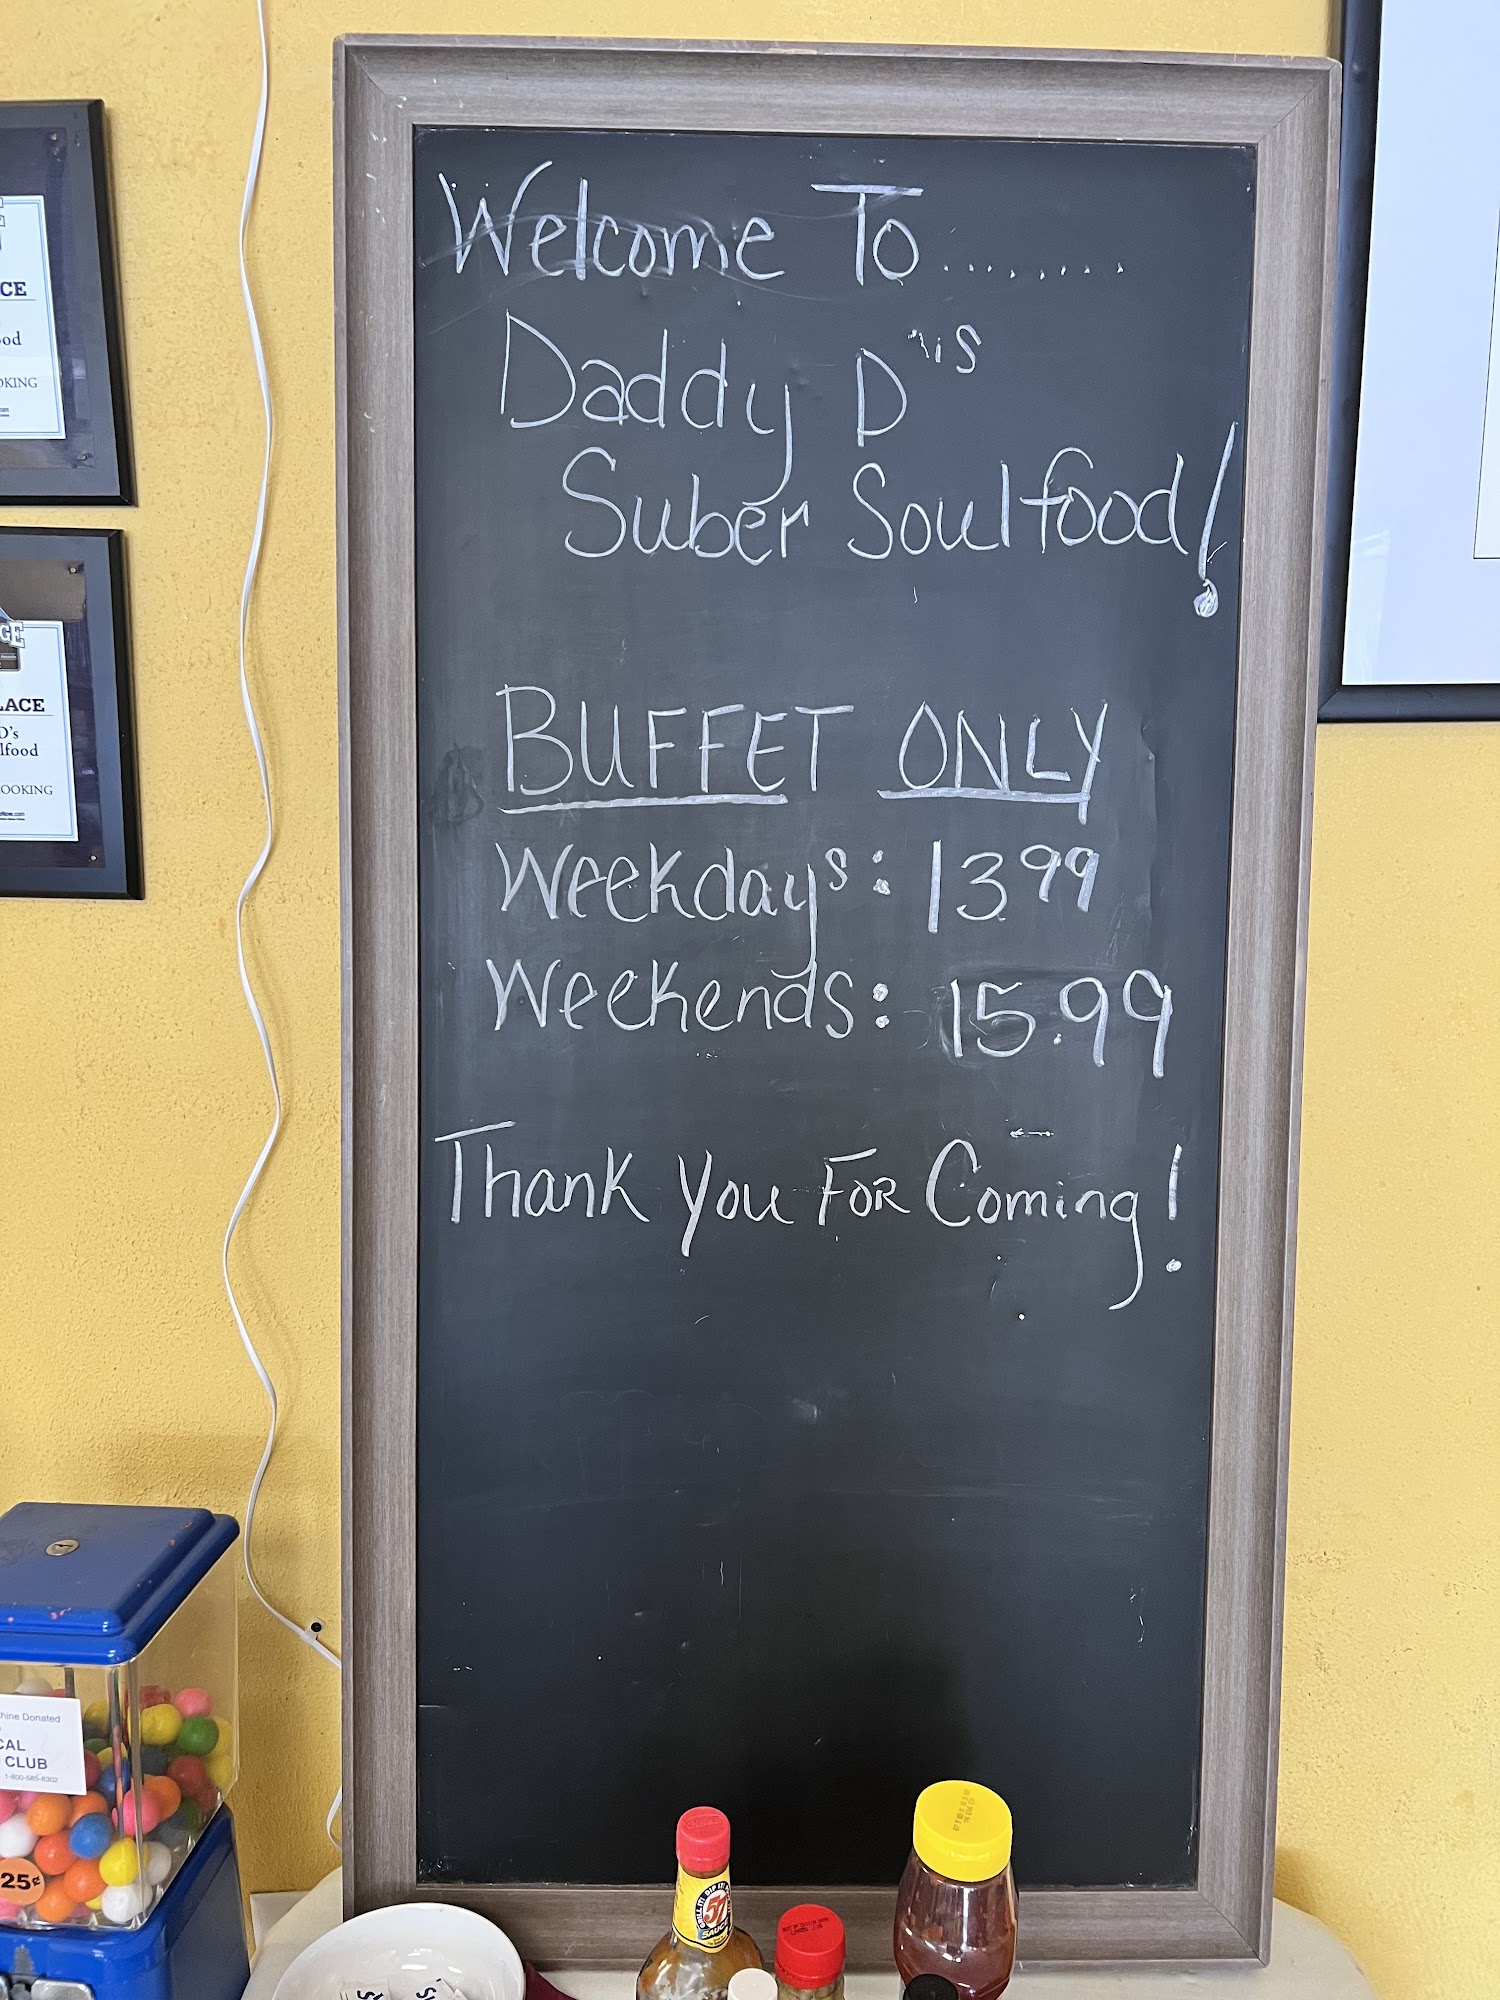 Welcome To........
Daddy D"s
Suber Soulfood!
BUFFET ONLY
Weekdays: 13.99
Weekends: 15.99
Thank You FOR Coming!
CE
ood
OKING
GE
LACE
D's
lfood
OOKING
hine Donated
CAL
CLUB
1-800-585-8302
25¢
57
SAUCE